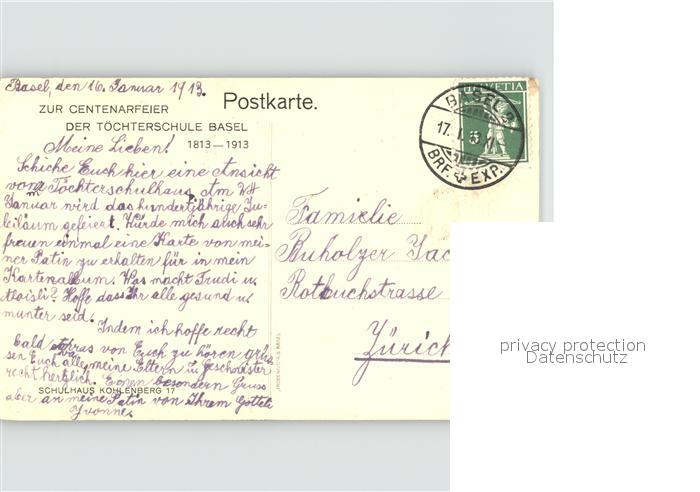 Basel, den 16. Januar 1913.
Postkarte.
ZUR CENTENARFEIER
DER TÖCHTERSCHULE BASEL
1813—1913
Meine Lieben!
Schicke Euch hier eine Ansicht
vom Töchterschulhaus. Am
Januar wird das hundertjährige Ju-
biläum gefeiert. Würde mich auch sehr
freuen einmal eine Karte von mei-
ner Patin zu erhalten für in mein
Kartenalbum. Was macht Trudi u.
Aloisli? Hoffe dass Ihr alle gesund u.
munter seid.
Indem ich hoffe recht
bald etwas von Euch zu hören grüs-
sen Euch alle meine Eltern u. Geschwister
recht herzlich. Einen besondern Gruss
SCHULHAUS KOHLENBERG 17
aber an meine Patin von Ihrem Gotteli
Yvonne.
HELVETIA
5
BASEL 2
17. I. 13
BRF. EXP.
Familie
Buholzer
Rotbuchstrasse
Zürich
privacy protection
Datenschutz